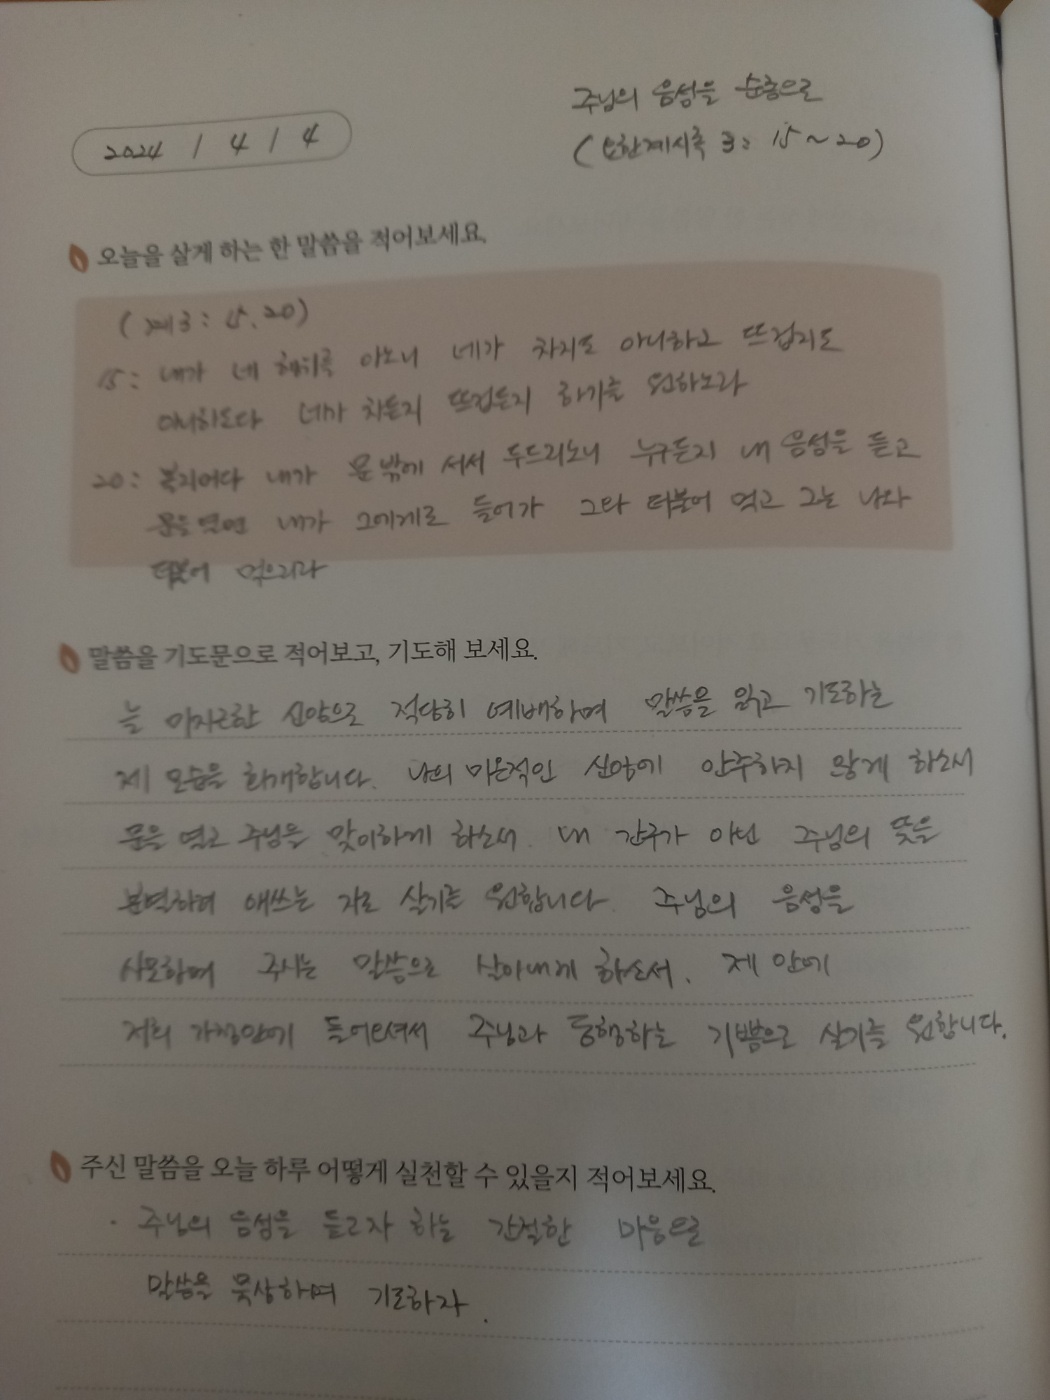 주님의 음성을 순종으로
2024 / 4 / 4
(요한계시록 3: 15 ~ 20)
오늘을 살게 하는 한 말씀을 적어보세요.
(계3: 15, 20)
15: 내가 네 행위를 아노니 네가 차지도 아니하고 뜨겁지도
아니하도다 네가 차든지 뜨겁든지 하기를 원하노라
20: 볼지어다 내가 문 밖에 서서 두드리노니 누구든지 내 음성을 듣고
문을 열면 내가 그에게로 들어가 그와 더불어 먹고 그는 나와
더불어 먹으리라
말씀을 기도문으로 적어보고, 기도해 보세요.
늘 미지근한 신앙으로 적당히 예배하며 말씀을 읽고 기도하는
제 모습을 회개합니다. 나의 미온적인 신앙에 안주하지 않게 하소서
문을 열고 주님을 맞이하게 하소서. 내 간구가 아닌 주님의 뜻을
분별하며 애쓰는 자로 살기를 원합니다. 주님의 음성을
사모하며 주시는 말씀으로 살아내게 하소서. 제 안에
저희 가정안에 들어오셔서 주님과 동행하는 기쁨으로 살기를 원합니다.
주신 말씀을 오늘 하루 어떻게 실천할 수 있을지 적어보세요.
· 주님의 음성을 듣고자 하는 간절한 마음으로
말씀을 묵상하며 기도하자.